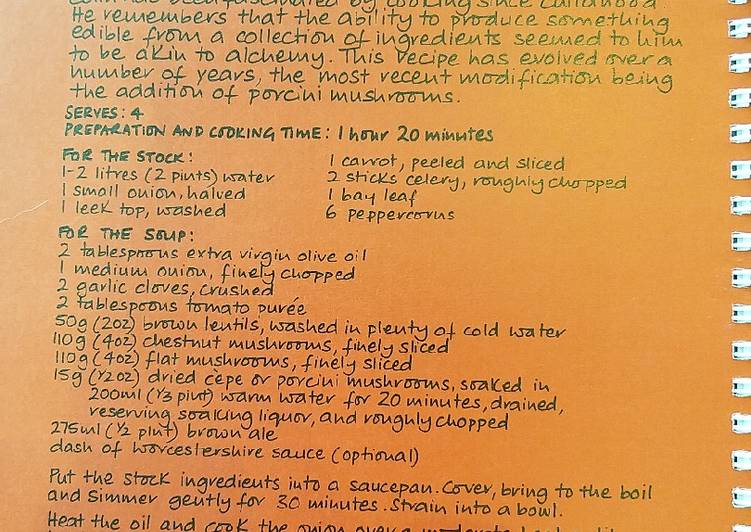 has been fascinated by cooking since childhood.
He remembers that the ability to produce something
edible from a collection of ingredients seemed to him
to be akin to alchemy. This recipe has evolved over a
number of years, the most recent modification being
the addition of porcini mushrooms.
SERVES: 4
PREPARATION AND COOKING TIME: 1 hour 20 minutes
FOR THE STOCK:
1-2 litres (2 pints) water
1 small onion, halved
1 leek top, washed
1 carrot, peeled and sliced
2 sticks celery, roughly chopped
1 bay leaf
6 peppercorns
FOR THE SOUP:
2 tablespoons extra virgin olive oil
1 medium onion, finely chopped
2 garlic cloves, crushed
2 tablespoons tomato purée
50g (2oz) brown lentils, washed in plenty of cold water
110g (4oz) chestnut mushrooms, finely sliced
110g (4oz) flat mushrooms, finely sliced
15g (½oz) dried cèpe or porcini mushrooms, soaked in
200ml (⅓ pint) warm water for 20 minutes, drained,
reserving soaking liquor, and roughly chopped
275ml (½ pint) brown ale
dash of Worcestershire sauce (optional)
Put the stock ingredients into a saucepan. Cover, bring to the boil
and simmer gently for 30 minutes. Strain into a bowl.
Heat the oil and cook the onion over a moderate heat